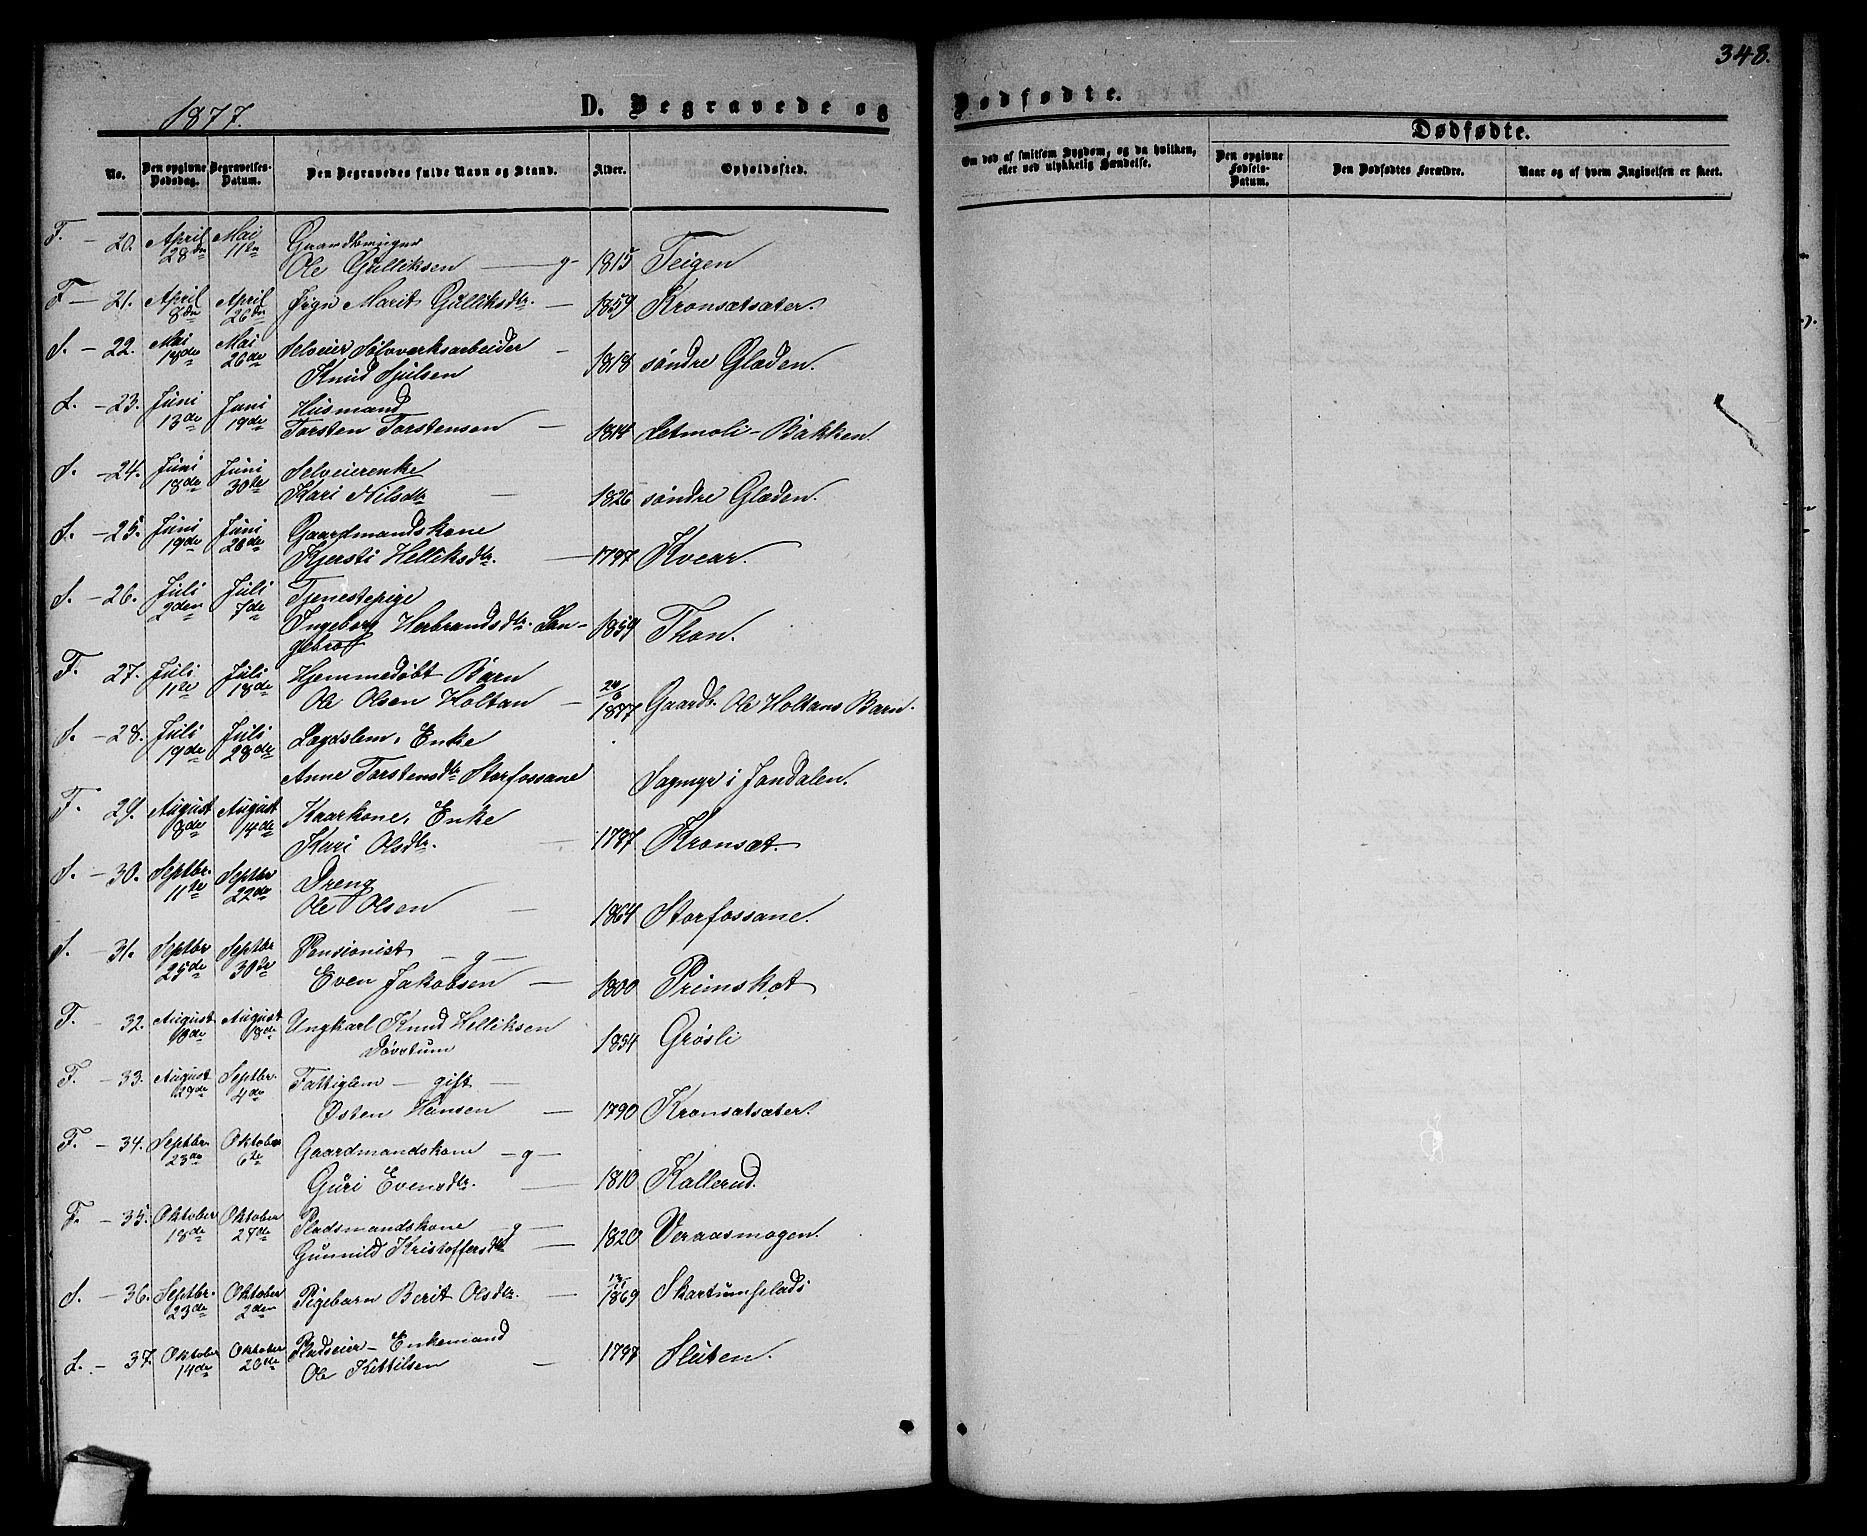 348.
1877. D. Begravede og Dødfødte.
Dødfødte.
No. Den opgivne Dødsdag. Begravelses-Datum. Den Begravedes fulde Navn og Stand. Alder. Opholdssted. Om død af smitsom Sygdom, og da hvilken, eller ved ulykkelig Hændelse. Den opgivne Fødsels-Datum. Den Dødfødtes Forældre. Naar og af hvem Angivelsen er skeet.
F. – 20. April 28de Mai 11te Gaardbruger
Ole Gulliksen — g- 1815 Teigen
F – 21. April 8de April 26de Marit Gulliksdtr. — 1859 Kronsætsæter.
S. – 22. Mai 18de Mai 26de Selveier Sølvverksarbeider —
Knud Sjulsen 1818 søndre Glæden.
L. – 23. Juni 13de Juni 19de Husmand
Torsten Torstensen — 1814 Letmoli-Bakken.
S. – 24. Juni 18de Juni 30te Selveierenke
Kari Nilsdtr — 1826 søndre Glæden.
S. – 25. Juni 19de Juni 26de Gaardmandskone
Kjersti Helliksdtr. — 1797 Kvear.
S. – 26. Juli 2den Juli 7de Tjenestepige
Ingeborg Herbrandsdtr. Lan-
gebrot 1859 Thon.
F. 27. Juli 11te Juli 18de Hjemmedøbt Barn
Ole Olsen Holtan – 24/6 1877 Gaardb. Ole Holtans Barn.
S. – 28. Juli 19de Juli 28de Lægdslem, Enke
Anne Torstensdtr Storfossane Sagmyr i Jondalen.
F. 29. August 8de August 14de Kaarkone, Enke
Kari Olsdtr. — 1787 Kronsæt.
S. – 30. Septbr. 11te Septbr 22de Dreng
Ole Olsen — 1864 Storfossane.
S. – 31. Septbr 25de Septbr 30de Pensionist — g —
Even Jakobsen — 1800 Primskot
F. – 32. August 10de August 18de Ungkarl Knud Helliksen
Døvetum 1854 Grøsli
F. – 33. August 29de Septbr. 4de Fattiglem — gift —
Østen Hansen — 1790 Kronsætsæter.
F. – 34. Septbr. 23de Oktober 6te Gaardmandskone — g —
Guri Evensdtr. — 1810 Kallerud.
F. – 35. Oktober 18de Oktober 27de Pladsmandskone — g —
Gunnild Kristoffersdtr — 1820 Veraasmogen.
S. – 36. Septbr. 23de Oktober 2den Pigebarn Berit Olsdtr. — 1869 Skartumsplads
L. – 37. Oktober 14de Oktober 20de Pladseier – Enkemand
Ole Kittilsen — 1797 Sluten.